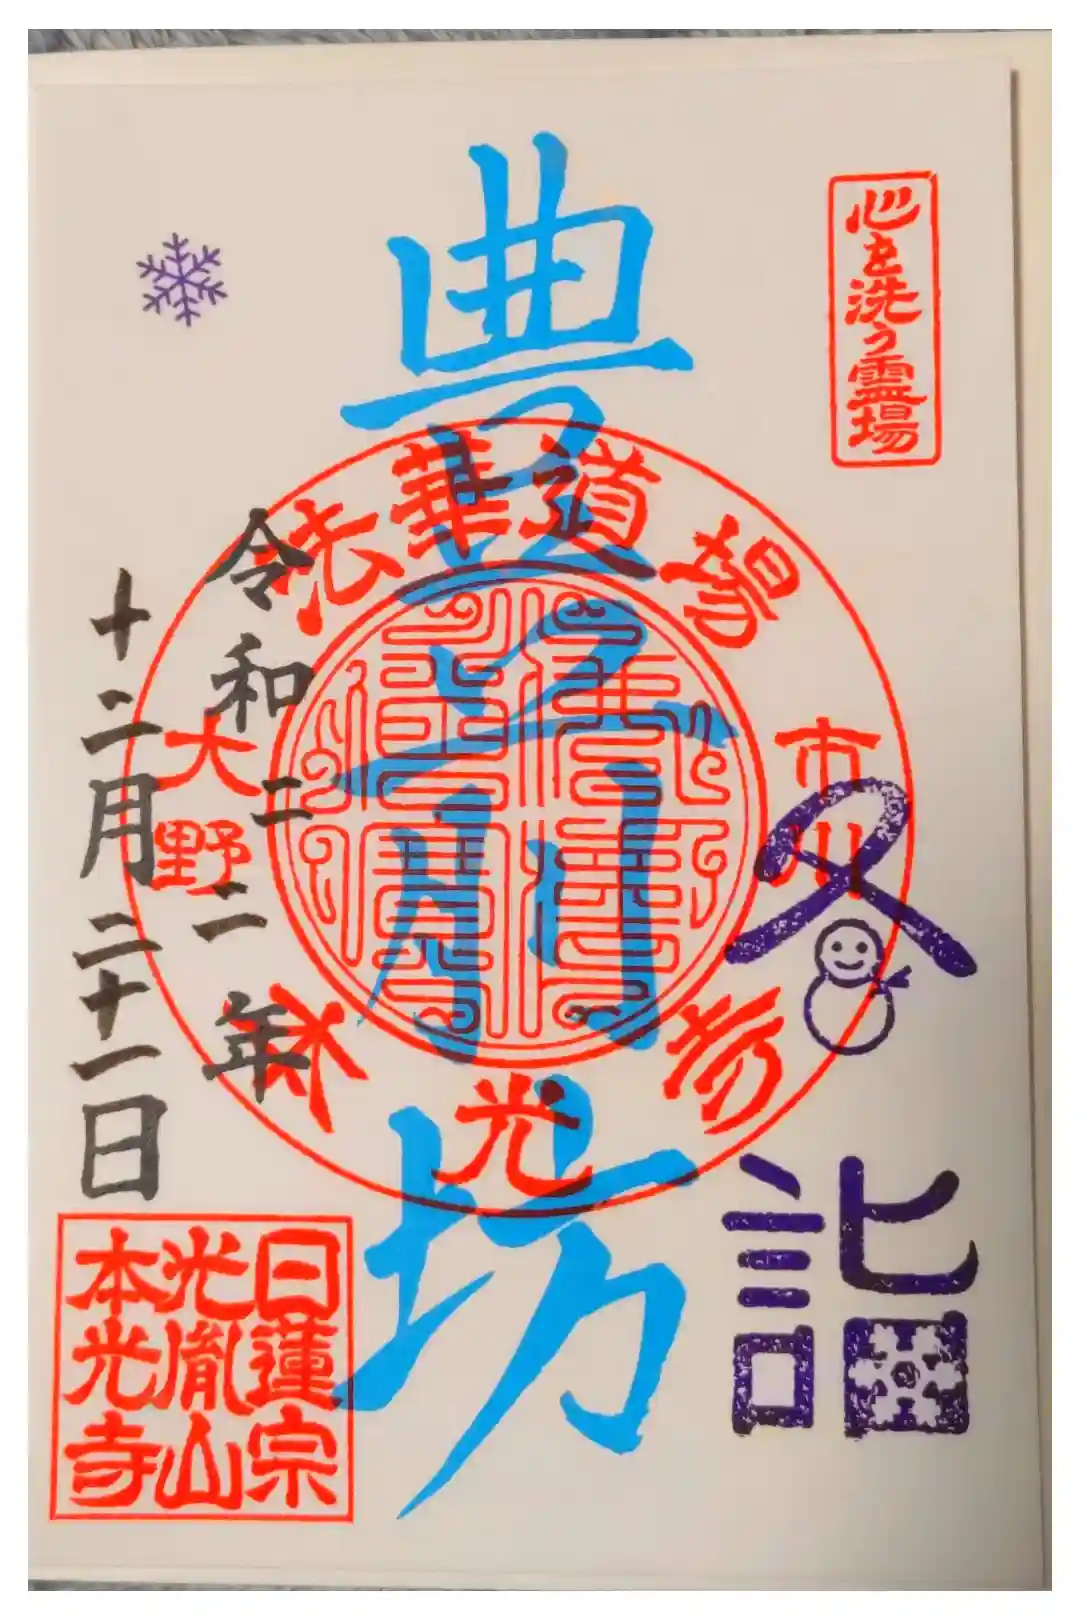 心を洗う霊場
豊前坊
法華道場
市川
大野
本光寺
冬詣
令和二二年
十二月二十一日
日蓮宗
光胤山
本光寺